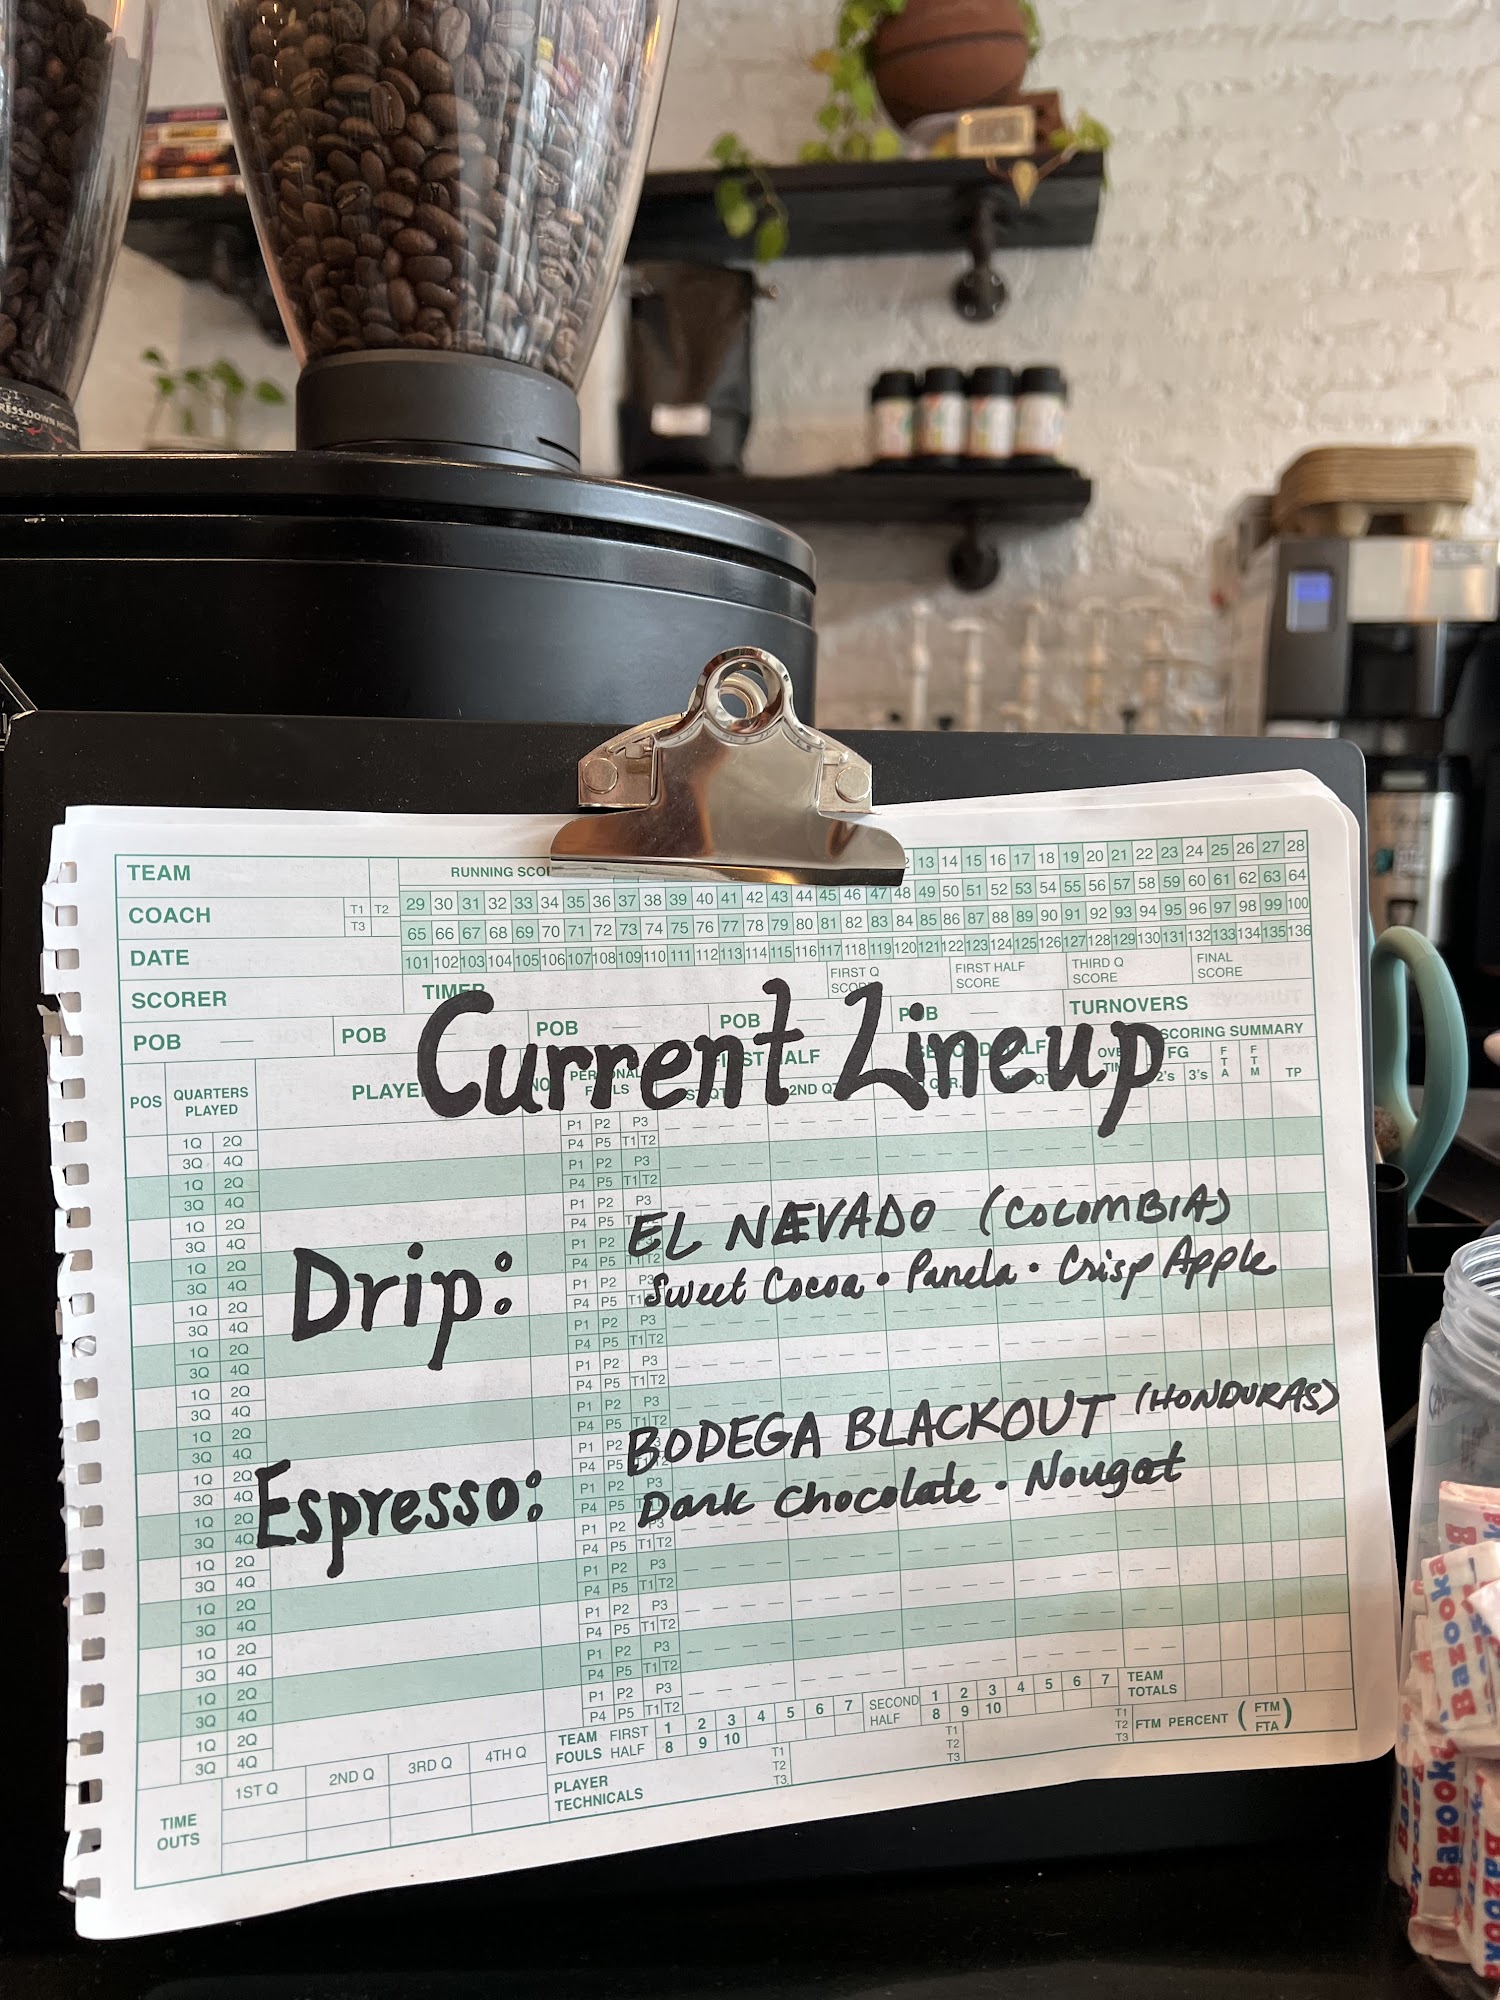 TEAM
RUNNING
13 14 15 16 17 18 19 20 21 22 23 24 25 26 27 28
COACH T1 T2 T3
29 30 31 32 33 34 35 36 37 38 39 40 41 42 43 44 45 46 47 48 49 50 51 52 53 54 55 56 57 58 59 60 61 62 63 64
65 66 67 68 69 70 71 72 73 74 75 76 77 78 79 80 81 82 83 84 85 86 87 88 89 90 91 92 93 94 95 96 97 98 99 100
DATE
101 102 103 104 105 106 107 108 109 110 111 112 113 114 115 116 117 118 119 120 121 122 123 124 125 126 127 128 129 130 131 132 133 134 135 136
SCORER TIMER
FIRST Q SCORE FIRST HALF SCORE THIRD Q SCORE FINAL SCORE
POB POB POB POB POB TURNOVERS
Current Lineup
SCORING SUMMARY
POS QUARTERS PLAYED PLAYER NO. PERSONAL FOULS FIRST HALF 2ND SECOND HALF FG 2's 3's FTA FTM TP
Drip: EL NÆVADO (COLOMBIA)
Sweet Cocoa • Panela • Crisp Apple
Espresso: BODEGA BLACKOUT (HONDURAS)
Dark Chocolate • Nougat
TEAM FOULS FIRST HALF 1 2 3 4 5 6 7 8 9 10
SECOND HALF 1 2 3 4 5 6 7 8 9 10
TEAM TOTALS
FTM PERCENT (FTM/FTA)
TIME OUTS 1ST Q 2ND Q 3RD Q 4TH Q
PLAYER TECHNICALS T1 T2 T3 T1 T2 T3 T1 T2 T3
Bazooka